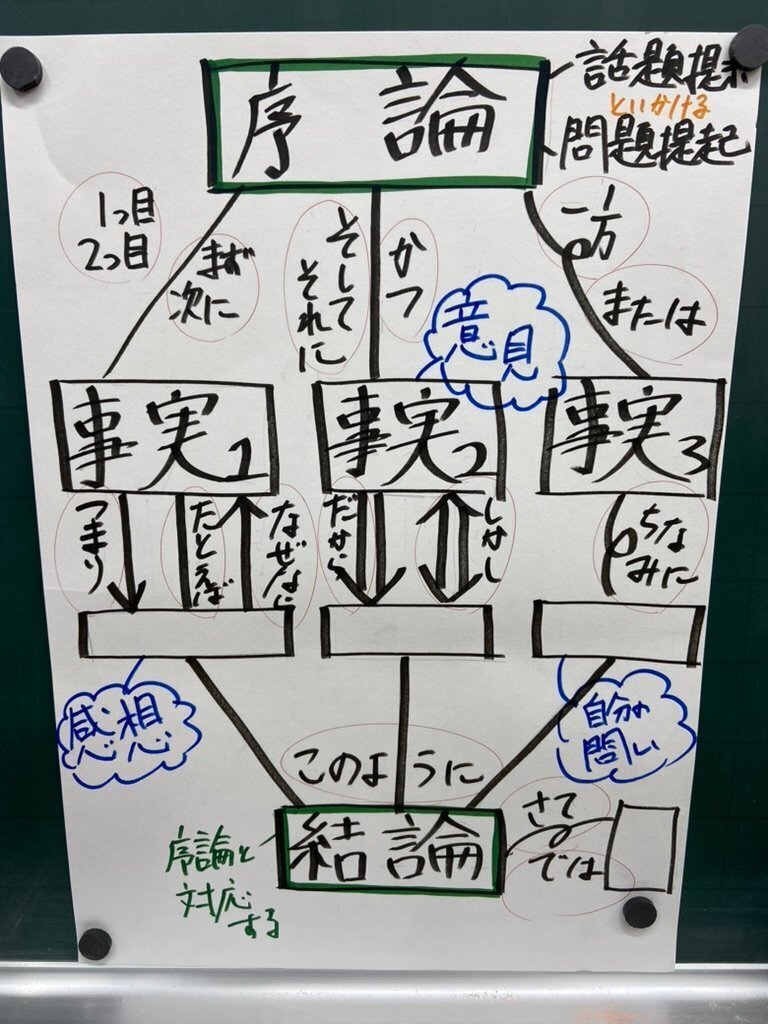 序論
話題提示
といかける
問題提起
1つ目
2つ目
まず
次に
そして
それに
かつ
一方
または
意見
事実1
事実2
事実3
つまり
たとえば
なぜなら
だから
しかし
ちな
みに
感想
自分の
問い
このように
結論
さて
では
序論と
対応
する